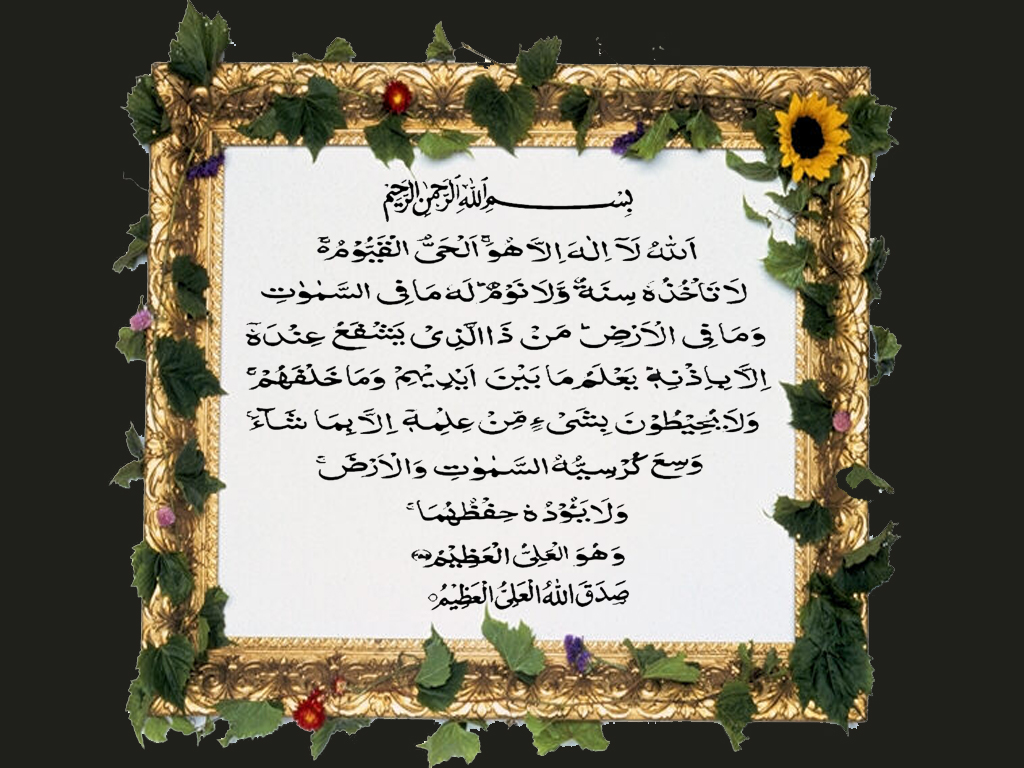 بِسْمِ اللهِ الرَّحْمٰنِ الرَّحِيْمِ
اَللهُ لَآ اِلٰهَ اِلَّا هُوَۚ اَلْحَيُّ الْقَيُّوْمُ ۚ
لَا تَاْخُذُهٗ سِنَةٌ وَّلَا نَوْمٌ ؕ لَهٗ مَا فِي السَّمٰوٰتِ
وَمَا فِي الْاَرْضِ ؕ مَنْ ذَا الَّذِيْ يَشْفَعُ عِنْدَهٗٓ
اِلَّا بِاِذْنِهٖ ؕ يَعْلَمُ مَا بَيْنَ اَيْدِيْهِمْ وَمَا خَلْفَهُمْ ۚ
وَلَا يُحِيْطُوْنَ بِشَيْءٍ مِّنْ عِلْمِهٖٓ اِلَّا بِمَا شَآءَ ۚ
وَسِعَ كُرْسِيُّهُ السَّمٰوٰتِ وَالْاَرْضَ ۚ
وَلَا يَـُٔوْدُهٗ حِفْظُهُمَا ۚ
وَهُوَ الْعَلِيُّ الْعَظِيْمُ ﴿۲۵۵﴾
صَدَقَ اللهُ الْعَلِيُّ الْعَظِيْمُ ○